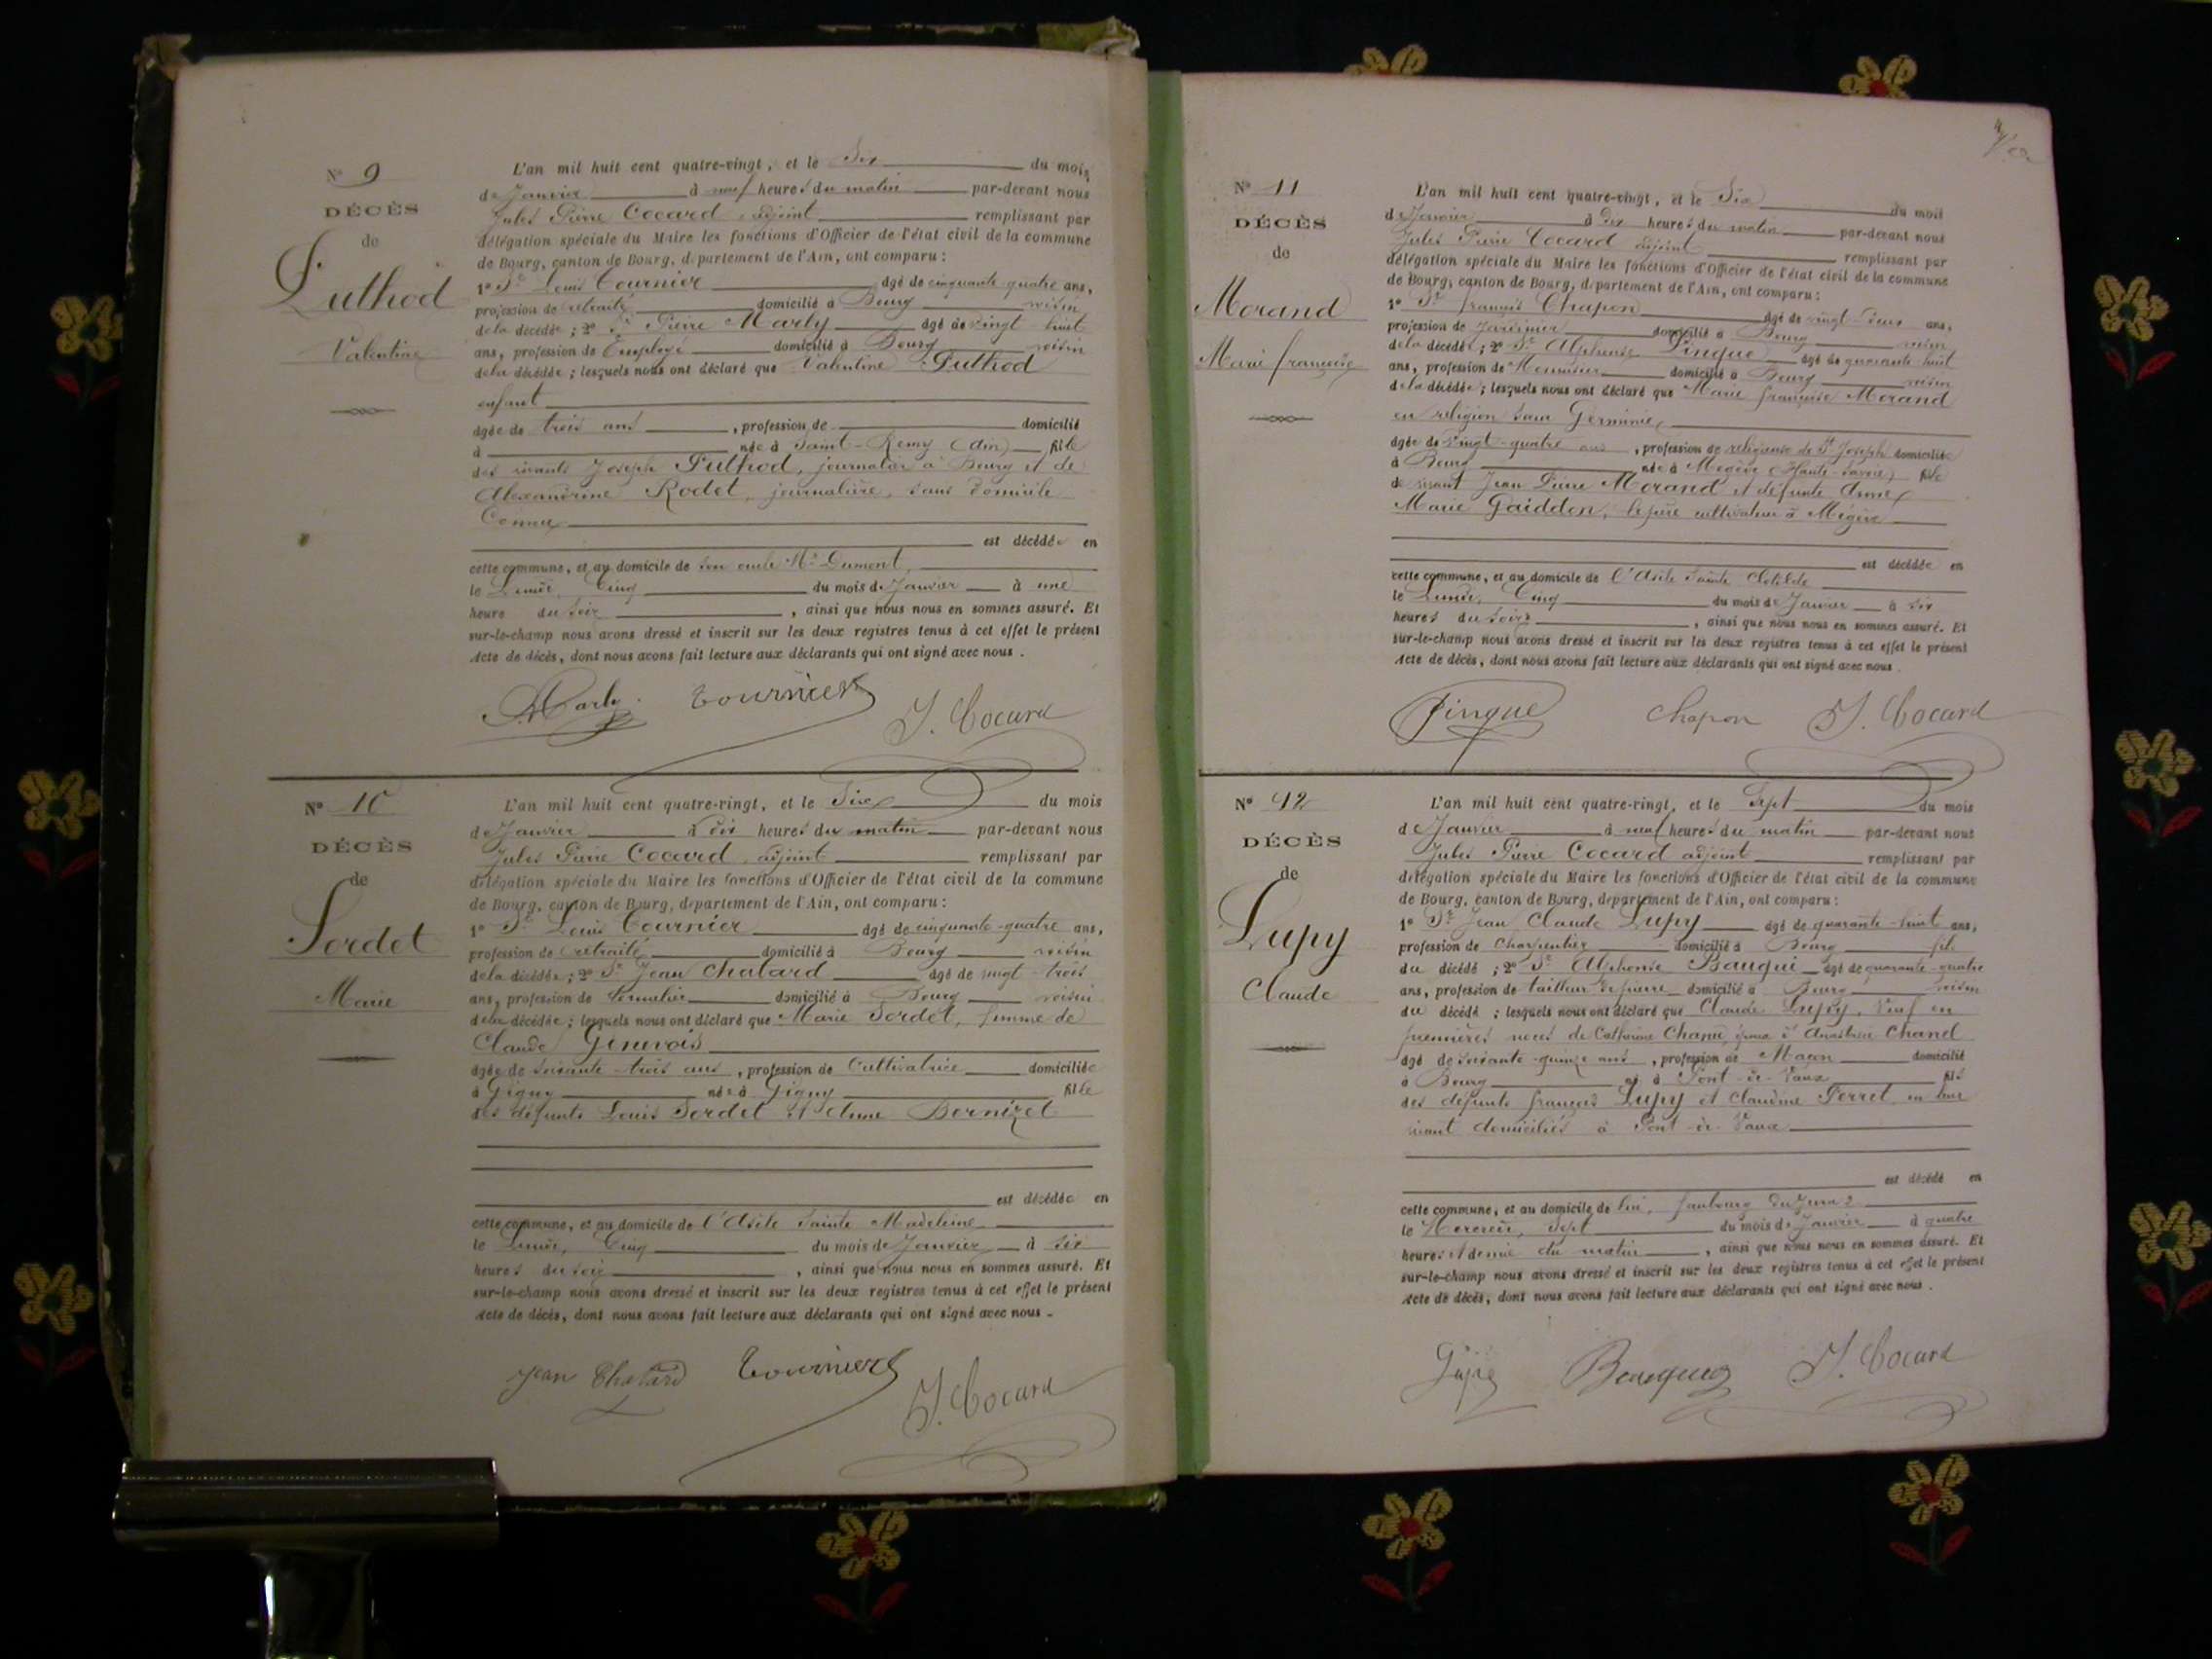 N° 9
DÉCÈS
de
Puthod
Valentine
L'an mil huit cent quatre-vingt, et le Six du mois
de Janvier à neuf heures du matin par-devant nous
Jules Pierre Cocard adjoint remplissant par
délégation spéciale du Maire les fonctions d'Officier de l'état civil de la commune
de Bourg, canton de Bourg, département de l'Ain, ont comparu :
1° Sr Louis Tournier âgé de cinquante quatre ans,
profession de retraité domicilié à Bourg voisin
de la décédée ; 2° Sr Pierre Marly âgé de vingt huit
ans, profession de Employé domicilié à Bourg voisin
de la décédée ; lesquels nous ont déclaré que Valentine Puthod
enfant
âgée de trois ans, profession de domicilié
à née à Saint-Remy (Ain) fille
des vivants Joseph Puthod, journalier à Bourg et de
Alexandrine Rodet, journalière, sans domicile
Connu
est décédée en
cette commune, et au domicile de son oncle Mr Dumont,
le Lundi, Cinq du mois de Janvier à une
heure du soir, ainsi que nous nous en sommes assuré. Et
sur-le-champ nous avons dressé et inscrit sur les deux registres tenus à cet effet le présent
Acte de décès, dont nous avons fait lecture aux déclarants qui ont signé avec nous.
Marly Tournier J. Cocard
N° 10
DÉCÈS
de
Sordet
Marie
L'an mil huit cent quatre-vingt, et le Six du mois
de Janvier à dix heures du matin par-devant nous
Jules Pierre Cocard adjoint remplissant par
délégation spéciale du Maire les fonctions d'Officier de l'état civil de la commune
de Bourg, canton de Bourg, département de l'Ain, ont comparu :
1° Sr Louis Tournier âgé de cinquante-quatre ans,
profession de retraité domicilié à Bourg voisin
de la décédée ; 2° Sr Jean Chalard âgé de vingt trois
ans, profession de domicilié à Bourg voisin
de la décédée ; lesquels nous ont déclaré que Marie Sordet, femme de
Claude Genevois
âgée de soixante-trois ans, profession de Cultivatrice domiciliée
à Gigny née à Gigny fille
des défunts Louis Sordet et Anne Bernizet
est décédée en
cette commune, et au domicile de l'Asile Sainte Madeleine
le Lundi, Cinq du mois de Janvier à six
heures du soir, ainsi que nous nous en sommes assuré. Et
sur-le-champ nous avons dressé et inscrit sur les deux registres tenus à cet effet le présent
Acte de décès, dont nous avons fait lecture aux déclarants qui ont signé avec nous.
Jean Chalard Tournier J. Cocard
N° 11
DÉCÈS
de
Morand
Marie françoise
L'an mil huit cent quatre-vingt, et le Six du mois
de Janvier à dix heures du matin par-devant nous
Jules Pierre Cocard adjoint remplissant par
délégation spéciale du Maire les fonctions d'Officier de l'état civil de la commune
de Bourg, canton de Bourg, département de l'Ain, ont comparu :
1° Sr françois Chapon âgé de vingt-deux ans,
profession de Jardinier domicilié à Bourg voisin
de la décédée ; 2° Sr Alphonse Pingue âgé de quarante huit
ans, profession de Menuisier domicilié à Bourg voisin
de la décédée ; lesquels nous ont déclaré que Marie françoise Morand
en religion sœur Germinie
âgée de vingt-quatre ans, profession de religieuse de St Joseph domiciliée
à Bourg née à Megève (Haute-Savoie) fille
de vivant Jean Pierre Morand et défunte Anne
Marie Gaiddon, le père cultivateur à Mégève
est décédée en
cette commune, et au domicile de l'Asile Sainte Clotilde
le Lundi, Cinq du mois de Janvier à six
heures du soir, ainsi que nous nous en sommes assuré. Et
sur-le-champ nous avons dressé et inscrit sur les deux registres tenus à cet effet le présent
Acte de décès, dont nous avons fait lecture aux déclarants qui ont signé avec nous.
Pingue Chapon J. Cocard
N° 12
DÉCÈS
de
Lupy
Claude
L'an mil huit cent quatre-vingt, et le Sept du mois
de Janvier à neuf heures du matin par-devant nous
Jules Pierre Cocard adjoint remplissant par
délégation spéciale du Maire les fonctions d'Officier de l'état civil de la commune
de Bourg, canton de Bourg, département de l'Ain, ont comparu :
1° Sr Jean Claude Lupy âgé de quarante-huit ans,
profession de Charpentier domicilié à Bourg fils
du décédé ; 2° Sr Alphonse Bauqui âgé de quarante-quatre
ans, profession de tailleur de pierre domicilié à Bourg voisin
du décédé ; lesquels nous ont déclaré que Claude Lupy, Veuf en
premières noces de Catherine Chanel, époux d' Chanel
âgé de soixante-quinze ans, profession de Maçon domicilié
à Bourg né à Pont-de-Vaux fils
des défunts françois Lupy et Claudine Perret, en leur
vivant domiciliés à Pont-de-Vaux
est décédé en
cette commune, et au domicile de lui, faubourg du Jura 2
le Mercredi, Sept du mois de Janvier à quatre
heures et demie du matin, ainsi que nous nous en sommes assuré. Et
sur-le-champ nous avons dressé et inscrit sur les deux registres tenus à cet effet le présent
Acte de décès, dont nous avons fait lecture aux déclarants qui ont signé avec nous.
Lupy Bauqui J. Cocard